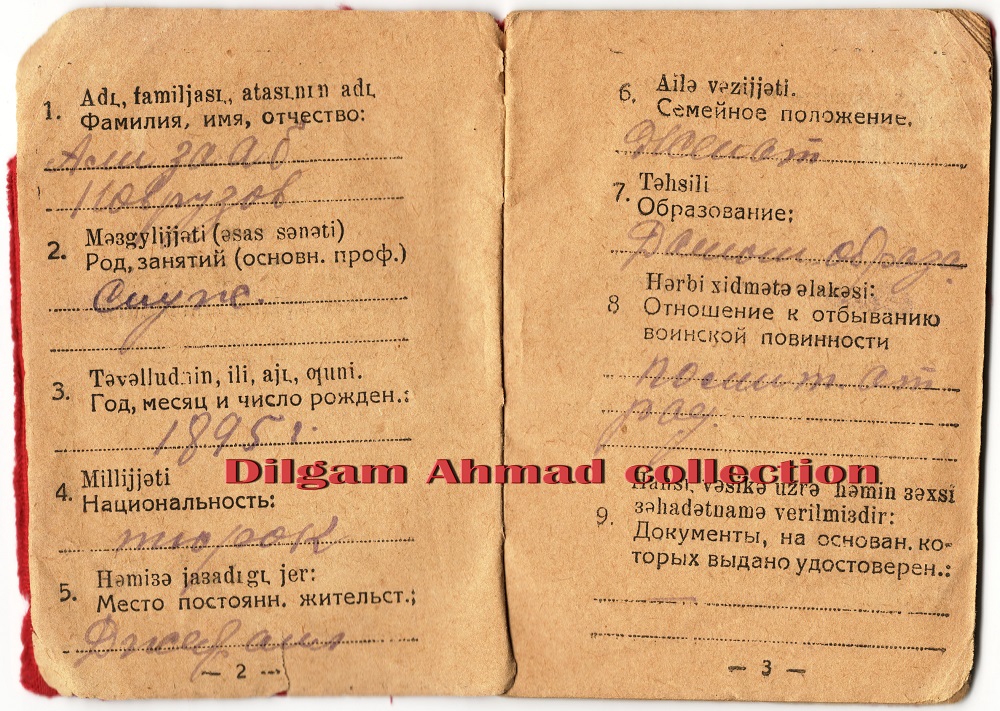 1. Adь, familjasь, atasьnьn adь
Фамилия, имя, отчество:
Новрузов
2. Məşgylijjəti (əsas sənəti)
Род, занятий (основн. проф.)
Служ.
3. Təvəllud.in, ili, ajь, gyni.
Год, месяц и число рожден.:
1895 г.
4. Millijjəti
Национальность:
тюрок
5. Həmişə jaşadıgь jer:
Место постоянн. жительст.;
— 2 —
6. Ailə vəzijjəti.
Семейное положение.
Женат
7. Təhsili
Образование;
образ.
8 Hərbi xidmətə əlakəsi:
Отношение к отбыванию
воинской повинности
Dilgam Ahmad collection
9. Hansь vəsikə uzrə həmin şəxsi
şəhadətnamə verilmişdir:
Документы, на основан. ко-
торых выдано удостоверен.:
—
— 3 —